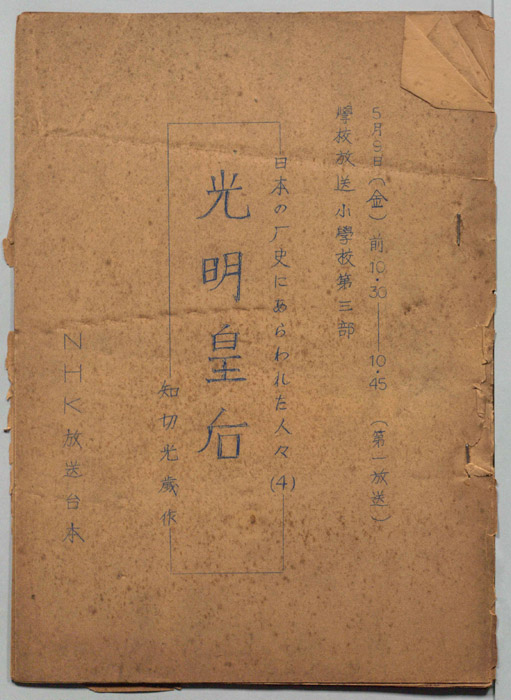 5月9日(金)前10.30――10.45(第一放送)
學校放送小學校第三部
日本の厂史にあらわれた人々(4)
光明皇后
知切光歳作
NHK放送台本